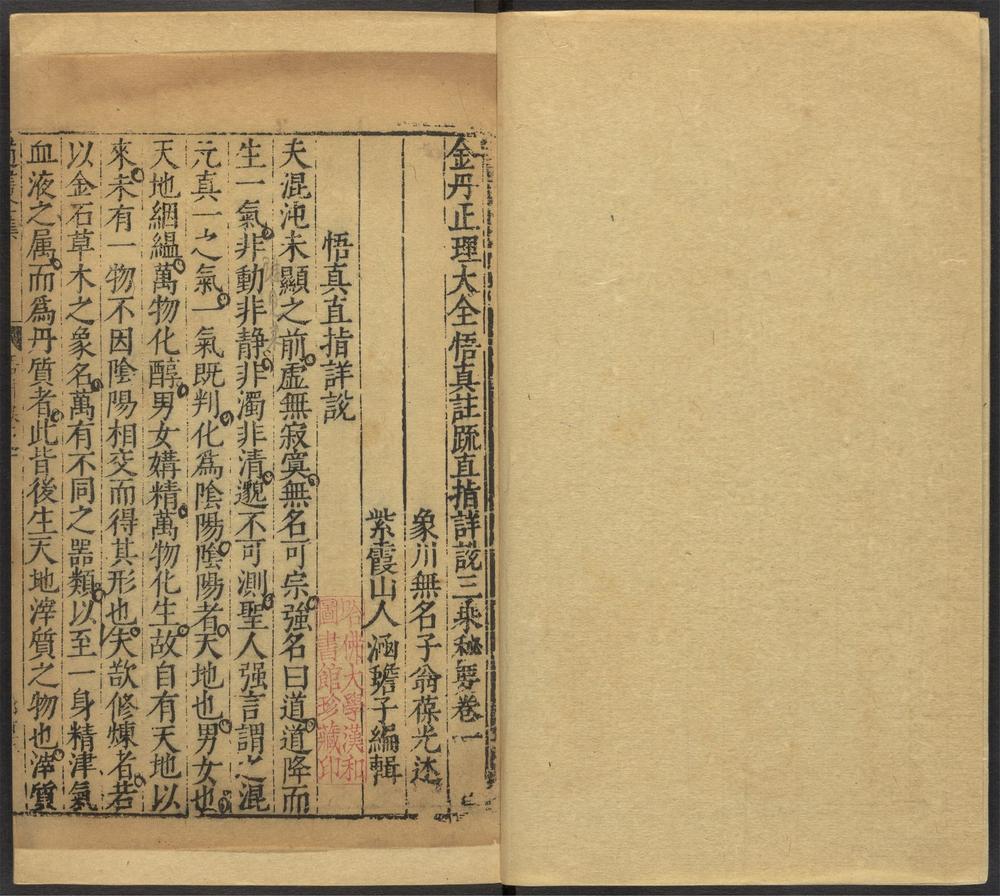 金丹正理大全悟真註䟽直指詳說三乘秘要卷一
象川無名子翁葆光述
紫霞山人涵蟾子編輯
悟真直指詳說
夫混沌未顯之前虛無寂寞無名可宗強名曰道道降而
生一氣非動非静非濁非清邈不可測聖人强言謂之混
元真一之氣一氣既判化爲陰陽陰陽者天地也男女也
天地絪緼萬物化醇男女媾精萬物化生故自有天地以
來未有一物不因陰陽相交而得其形也夫欲修煉者若
以金石草木之象名萬有不同之噐類以至一身精津氣
血液之属而爲丹質者此皆後生天地滓質之物也滓質
哈佛大學漢和
圖書館珍藏印